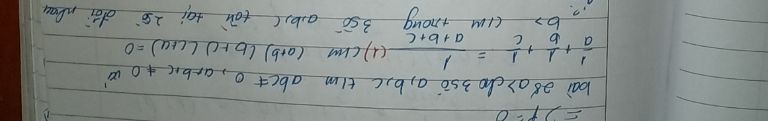 =) P = 0
bài 28 a> cho 3 số a,b,c t/m abc ≠ 0, a+b+c ≠ 0 và
1/a + 1/b + 1/c = 1/(a+b+c) (1) c/m (a+b)(b+c)(c+a) = 0
b> c/m trong 3 số a,b,c luôn tồn tại 2 số đối nhau